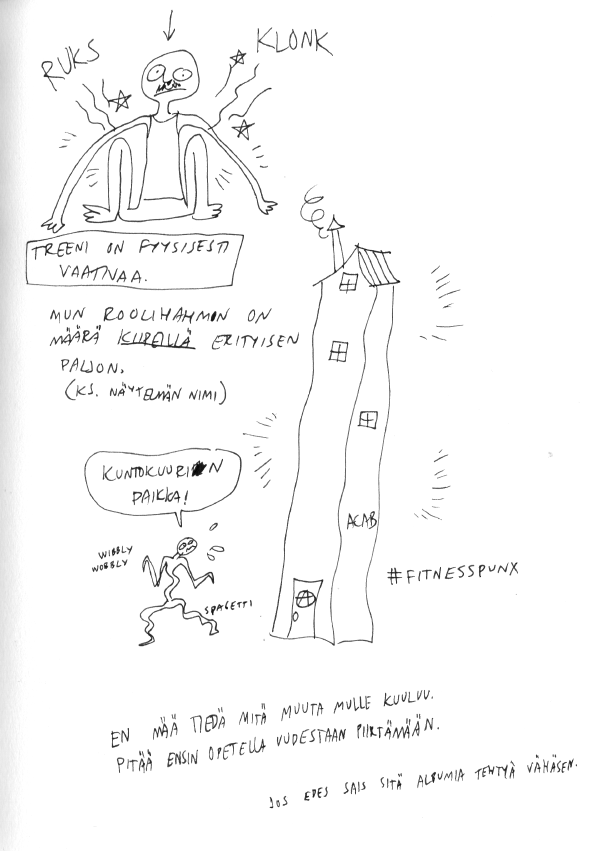 RUKS
KLONK
TREENI ON FYYSISESTI
VAATIVAA.
MUN ROOLIHAHMON ON
MÄÄRÄ KUPEILLA ERITYISEN
PALJON.
(KS. NÄYTELMÄN NIMI)
KUNTOKUURIN
PAIKKA!
WIBBLY
WOBBLY
SPAGETTI
ACAB
A
#FITNESSPUNX
EN MÄÄ TIEDÄ MITÄ MUUTA MULLE KUULUU.
PITÄÄ ENSIN OPETELLA UUDESTAAN PIIRTÄMÄÄN.
JOS EDES SAIS SITÄ ALBUMIA TEHTYÄ VÄHÄSEN.